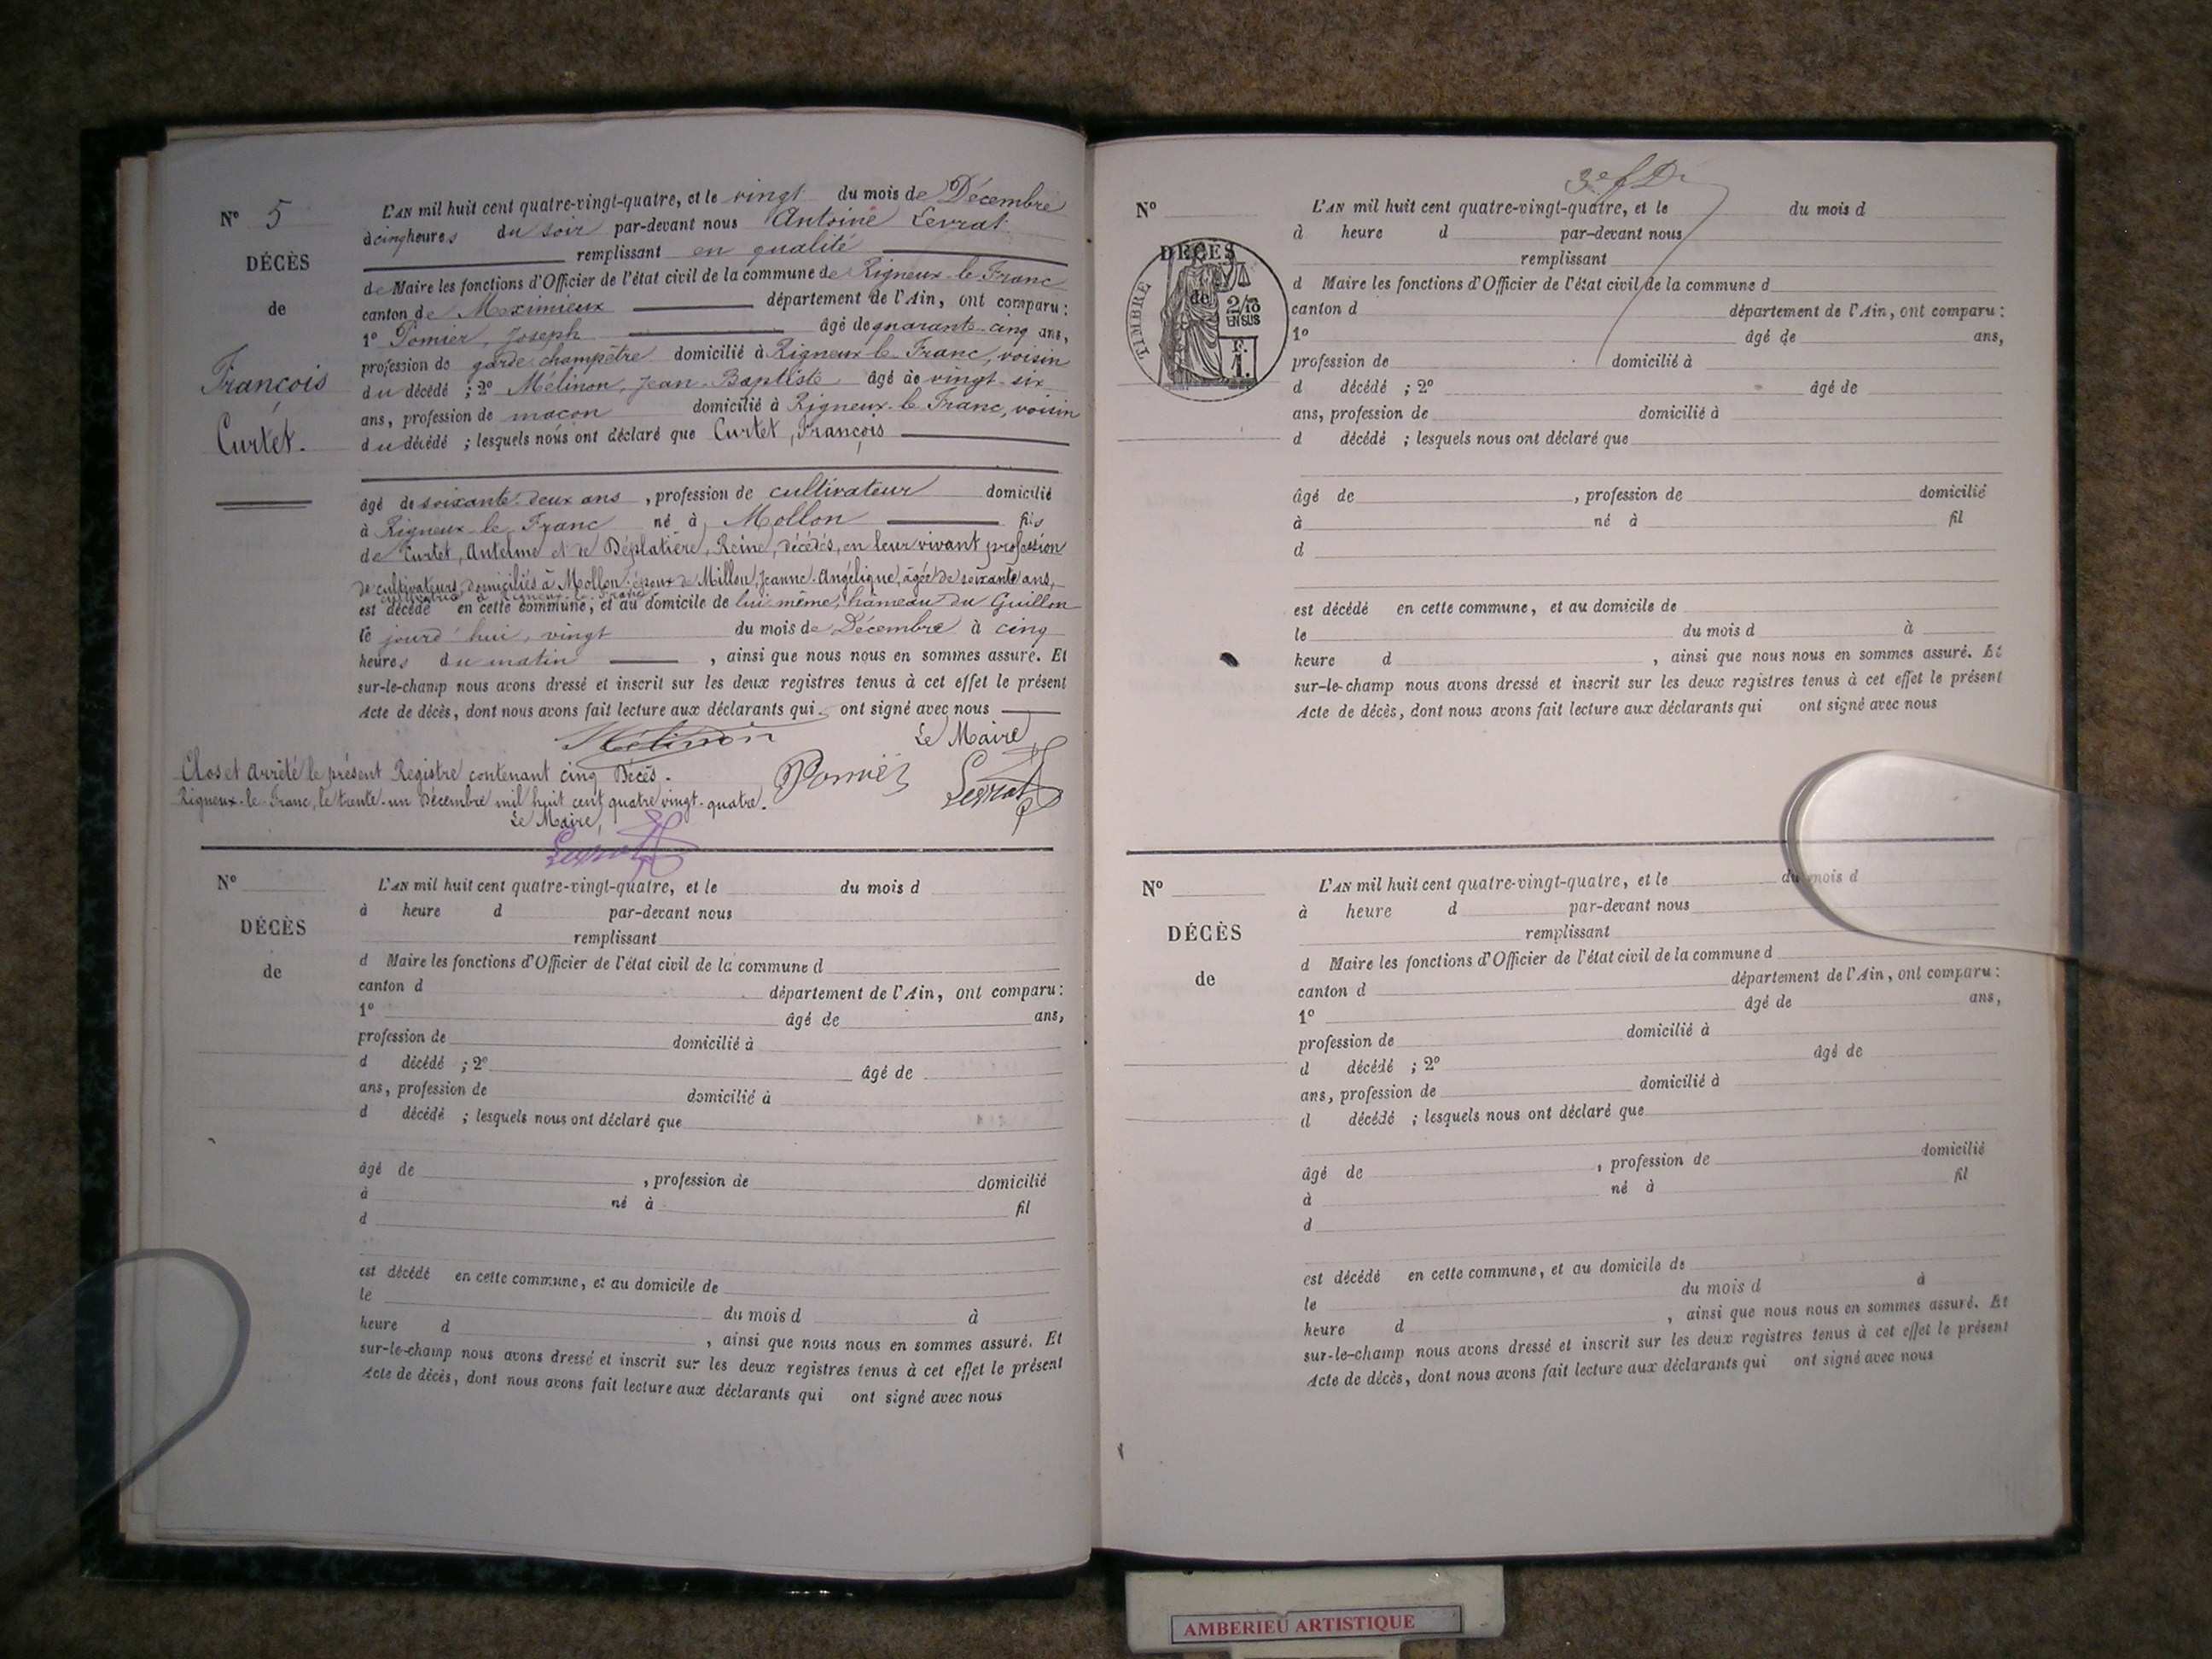 N° 5
DÉCÈS
de
François
Curtet.
L'AN mil huit cent quatre-vingt-quatre, et le vingt du mois de Décembre
à cinq heures du soir par-devant nous Antoine Levrat
remplissant en qualité
de Maire les fonctions d'Officier de l'état civil de la commune de Rigneux-le-Franc
canton de Meximieux département de l'Ain, ont comparu :
1° Pomier, Joseph âgé de quarante-cinq ans,
profession de garde-champêtre domicilié à Rigneux-le-Franc, voisin
du décédé ; 2° Mélinon, Jean-Baptiste âgé de vingt-six
ans, profession de maçon domicilié à Rigneux-le-Franc, voisin
du décédé ; lesquels nous ont déclaré que Curtet, François
âgé de soixante-deux ans, profession de cultivateur domicilié
à Rigneux-le-Franc né à Mollon fils
de Curtet, Antelme et de Déplatière, Reine, décédés, en leur vivant profession
de cultivateurs, domiciliés à Mollon, époux de Millou, Jeanne-Angélique, âgée de soixante ans,
cultivatrice à Rigneux-le-Franc
est décédé en cette commune, et au domicile de lui-même, hameau du Guillon
le jourd'hui, vingt du mois de Décembre à cinq
heures du matin, ainsi que nous nous en sommes assuré. Et
sur-le-champ nous avons dressé et inscrit sur les deux registres tenus à cet effet le présent
Acte de décès, dont nous avons fait lecture aux déclarants qui ont signé avec nous
Mélinon Le Maire
Pomier Levrat
Clos et Arrêté le présent Registre contenant cinq Décès.
Rigneux-le-Franc, le trente-un Décembre mil huit cent quatre-vingt-quatre.
Le Maire,
Levrat
N°
DÉCÈS
de
L'AN mil huit cent quatre-vingt-quatre, et le du mois d
à heure d par-devant nous
remplissant
d Maire les fonctions d'Officier de l'état civil de la commune d
canton d département de l'Ain, ont comparu :
1° âgé de ans,
profession de domicilié à
d décédé ; 2° âgé de
ans, profession de domicilié à
d décédé ; lesquels nous ont déclaré que
âgé de , profession de domicilié
à né à fil
d
est décédé en cette commune, et au domicile de
le du mois d à
heure d , ainsi que nous nous en sommes assuré. Et
sur-le-champ nous avons dressé et inscrit sur les deux registres tenus à cet effet le présent
Acte de décès, dont nous avons fait lecture aux déclarants qui ont signé avec nous
N°
DÉCÈS
de
TIMBRE
2/10
EN SUS
F.
1.
L'AN mil huit cent quatre-vingt-quatre, et le du mois d
à heure d par-devant nous
remplissant
d Maire les fonctions d'Officier de l'état civil de la commune d
canton d département de l'Ain, ont comparu :
1° âgé de ans,
profession de domicilié à
d décédé ; 2° âgé de
ans, profession de domicilié à
d décédé ; lesquels nous ont déclaré que
âgé de , profession de domicilié
à né à fil
d
est décédé en cette commune, et au domicile de
le du mois d à
heure d , ainsi que nous nous en sommes assuré. Et
sur-le-champ nous avons dressé et inscrit sur les deux registres tenus à cet effet le présent
Acte de décès, dont nous avons fait lecture aux déclarants qui ont signé avec nous
N°
DÉCÈS
de
L'AN mil huit cent quatre-vingt-quatre, et le du mois d
à heure d par-devant nous
remplissant
d Maire les fonctions d'Officier de l'état civil de la commune d
canton d département de l'Ain, ont comparu :
1° âgé de ans,
profession de domicilié à
d décédé ; 2° âgé de
ans, profession de domicilié à
d décédé ; lesquels nous ont déclaré que
âgé de , profession de domicilié
à né à fil
d
est décédé en cette commune, et au domicile de
le du mois d à
heure d , ainsi que nous nous en sommes assuré. Et
sur-le-champ nous avons dressé et inscrit sur les deux registres tenus à cet effet le présent
Acte de décès, dont nous avons fait lecture aux déclarants qui ont signé avec nous
AMBERIEU ARTISTIQUE